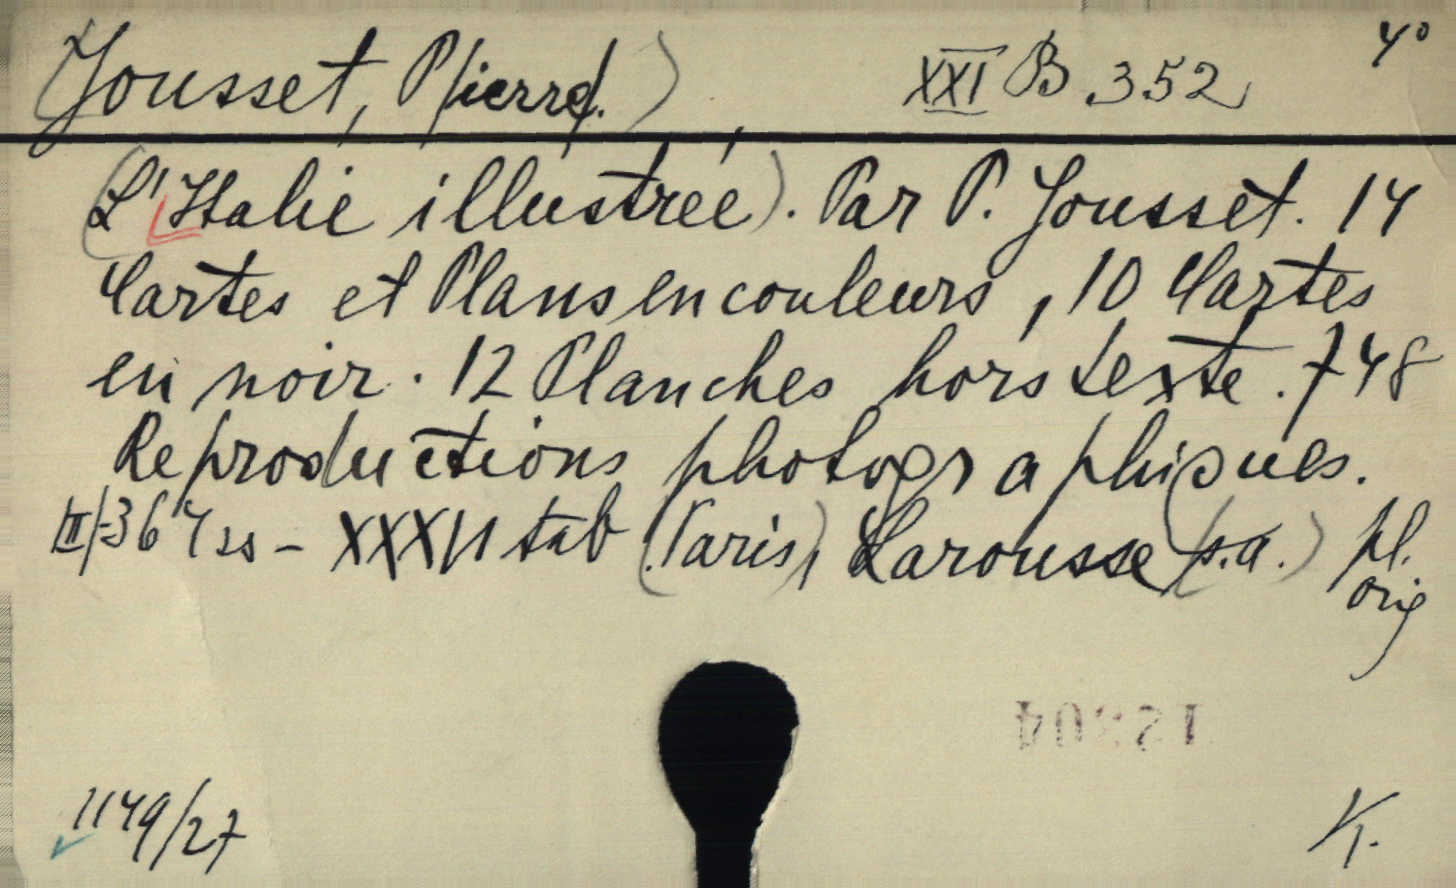 (Jousset, P/ierre/.) XXI B 352 4°
(L'Italie illustrée). Par P. Jousset. 14
Cartes et Plans en couleurs, 10 Cartes
en noir. 12 Planches hors texte. 748
Reproductions photographiques.
/II/-36 - tab (Paris), Larousse (s.a.) pl.
orig
1149/27